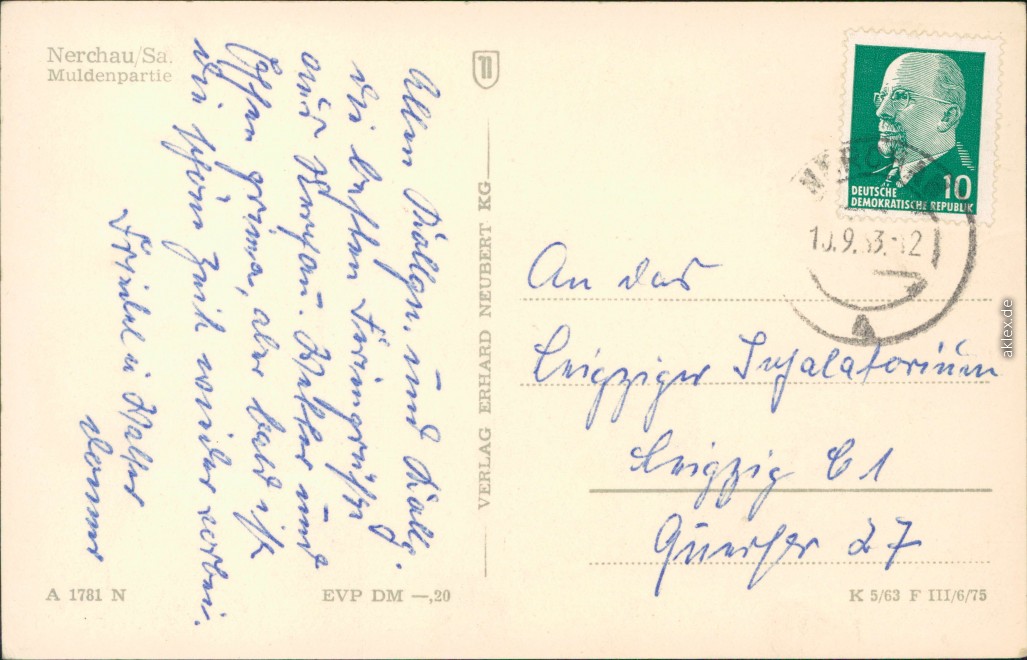 Nerchau/Sa.
Muldenpartie
Allen Kollgn. und Kollg.
die besten Feriengrüße
aus Nerchau. Wetter und
Essen prima, aber bald ist
die schöne Zeit wieder vorbei.
Friedel u. Walter
VERLAG ERHARD NEUBERT KG
DEUTSCHE
DEMOKRATISCHE REPUBLIK
10
An das
Leipziger Inhalatorium
Leipzig C 1
Querstr 27
A 1781 N
EVP DM —,20
K 5/63 F III/6/75
aklex.de